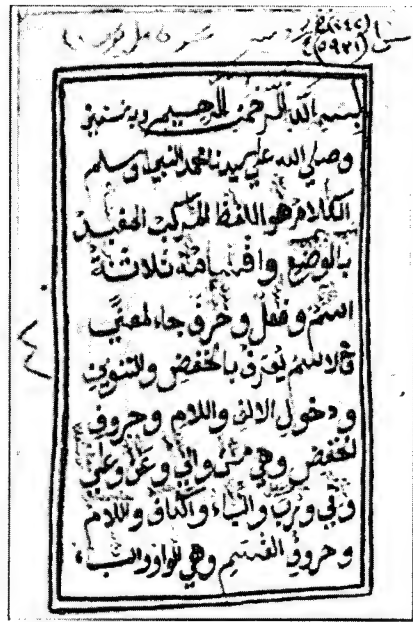 بسم الله الرحمن الرحيم وبه نستعين
وصلي الله علي سيدنا محمد النبي وسلم
الكلام هو اللفظ المركب المفيد
بالوضع واقسامه ثلاثة
اسم وفعل وحرف جاء لمعني
فالاسم يعرف بالخفض والتنوين
ودخول الالف واللام وحروف
الخفض وهي من والي وعن وعلي
وفي ورب والباء والكاف واللام
وحروف القسم وهي الواو والباء